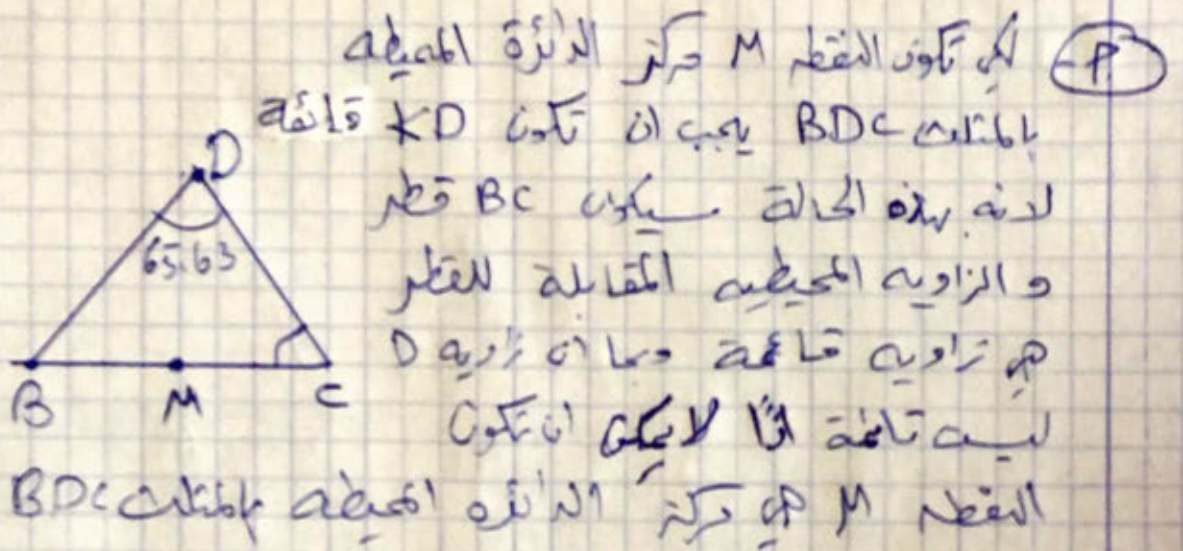 أ-
لكي تكون النقطه M مركز الدائرة المحيطه
بالمثلث BDC يجب ان تكون ∢D قائمة
لانه بهذه الحالة سيكون BC قطر
و الزاويه المحيطيه المقابلة للقطر
هي زاويه قائمة وبما ان زاويه D
ليست قائمة اذًا لا يمكن ان تكون
النقطه M هي مركز الدائره المحيطه بالمثلث BDC
D
65.63
B M C